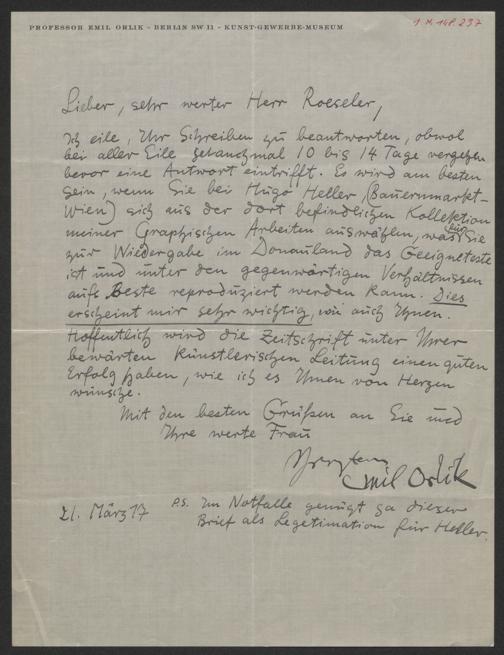 PROFESSOR EMIL ORLIK – BERLIN SW 11 – KUNST-GEWERBE-MUSEUM
Lieber, sehr werter Herr Roeseler,
Ich eile, Ihr Schreiben zu beantworten, obwol
bei aller Eile manchmal 10 bis 14 Tage vergehen
bevor eine Antwort eintrifft. Es wird am besten
sein, wenn Sie bei Hugo Heller (Bauernmarkt-
Wien) sich aus der dort befindlichen Kollektion
meiner Graphischen Arbeiten auswählen, was für Sie
zur Wiedergabe im Donauland das Geeigneteste
ist und unter den gegenwärtigen Verhältnissen
aufs Beste reproduziert werden kann. Dies
erscheint mir sehr wichtig, wie auch Ihnen.
Hoffentlich wird die Zeitschrift unter Ihrer
bewärten künstlerischen Leitung einen guten
Erfolg haben, wie ich es Ihnen von Herzen
wünsche.
Mit den besten Grüßen an Sie und
Ihre werte Frau
Emil Orlik
21. März 17
P.S. Im Notfalle genügt ja dieser
Brief als Legetimation für Heller.